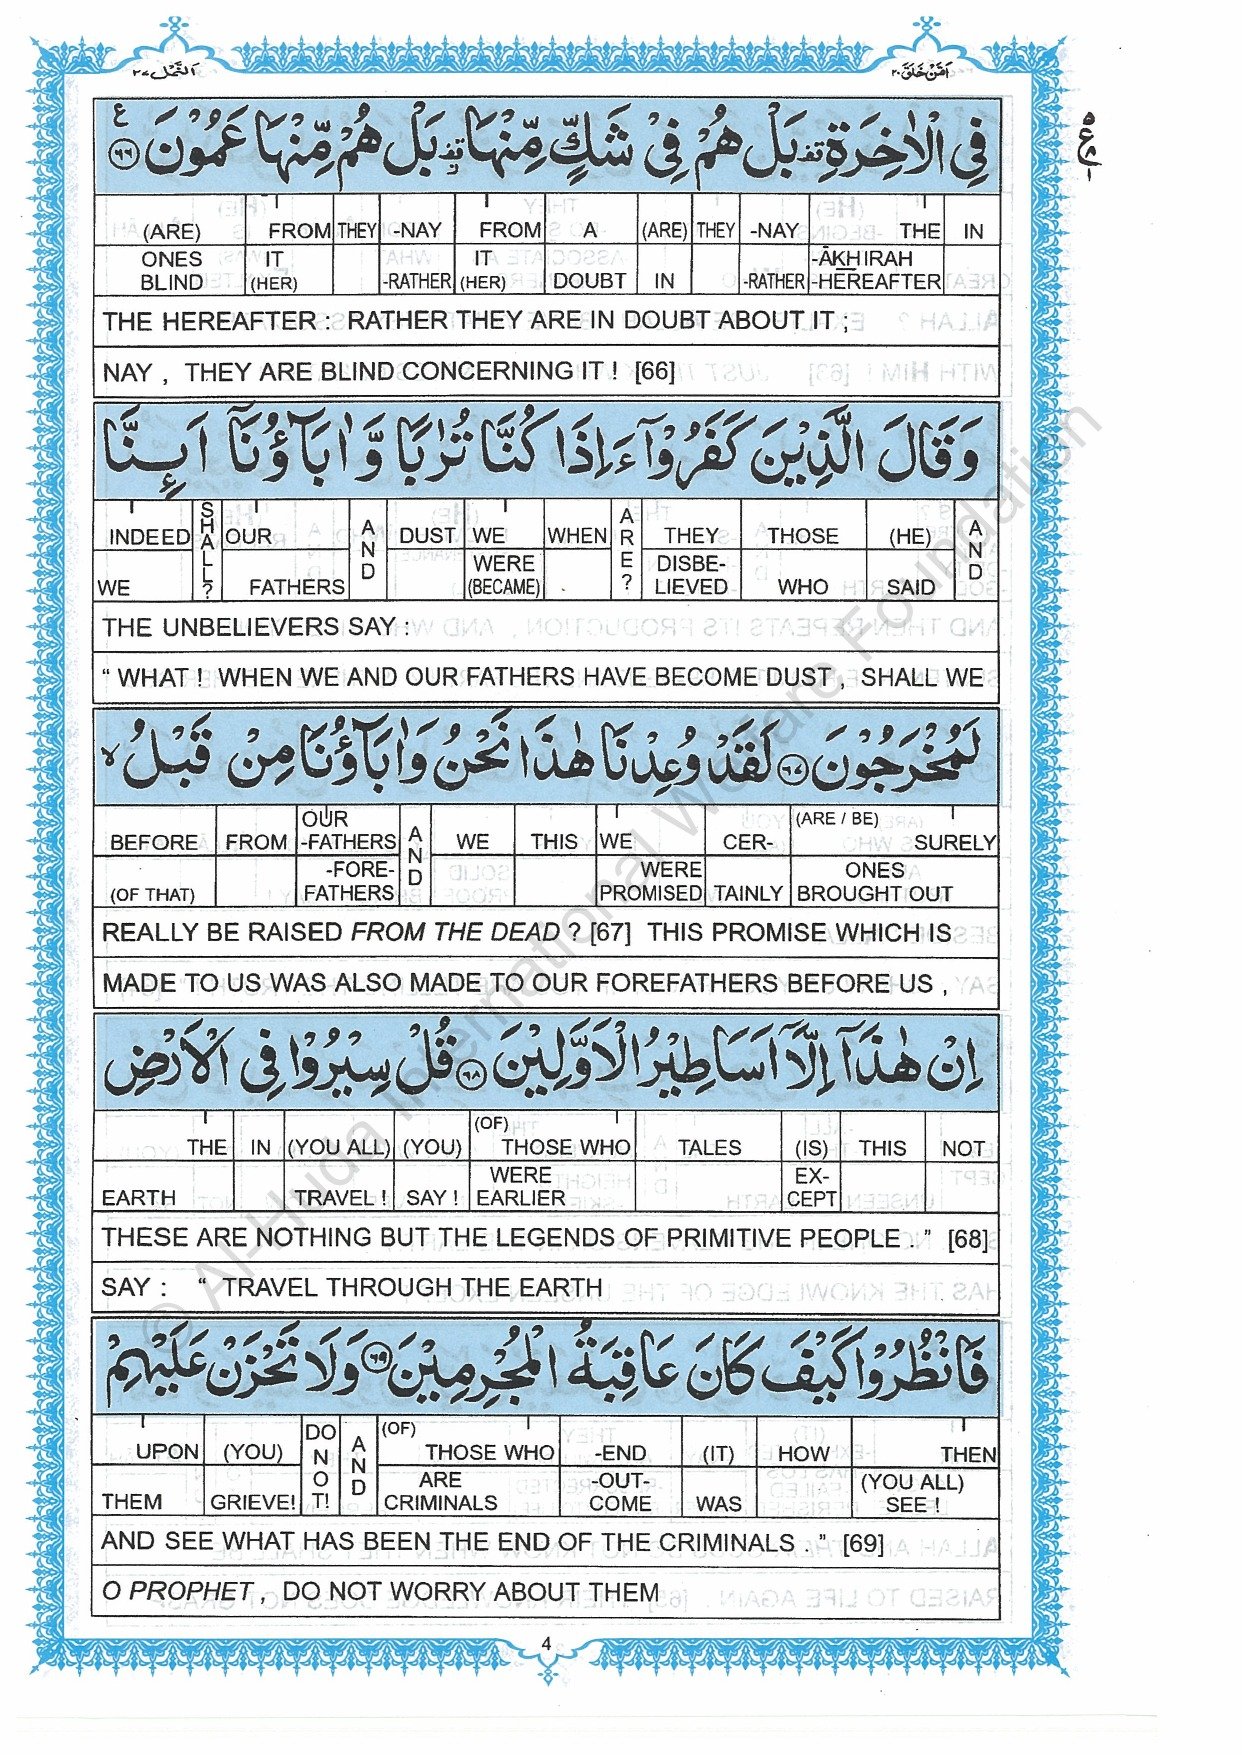 النمل ٢٧
امن خلق ٢٠
فِي الْاٰخِرَةِ ۫ بَلْ هُمْ فِيْ شَكٍّ مِّنْهَا ۫ بَلْ هُمْ مِّنْهَا عَمُوْنَ ﴿٦٦﴾ ع
(ARE) FROM THEY -NAY FROM A (ARE) THEY -NAY THE IN
ONES IT IT -ĀKHIRAH
BLIND (HER) -RATHER (HER) DOUBT IN -RATHER -HEREAFTER
THE HEREAFTER : RATHER THEY ARE IN DOUBT ABOUT IT ;
NAY , THEY ARE BLIND CONCERNING IT ! [66]
وَقَالَ الَّذِيْنَ كَفَرُوْٓا ءَاِذَا كُنَّا تُرٰبًا وَّاٰبَآؤُنَآ اَىِٕنَّا
INDEED SHALL? OUR AND DUST WE WHEN ARE? THEY THOSE (HE) AND
WERE DISBE-
WE FATHERS (BECAME) LIEVED WHO SAID
THE UNBELIEVERS SAY :
“ WHAT ! WHEN WE AND OUR FATHERS HAVE BECOME DUST , SHALL WE
لَمُخْرَجُوْنَ ﴿٦٧﴾ لَقَدْ وُعِدْنَا هٰذَا نَحْنُ وَاٰبَآؤُنَا مِنْ قَبْلُ ۙ
OUR (ARE / BE)
BEFORE FROM -FATHERS AND WE THIS WE CER- SURELY
-FORE- WERE ONES
(OF THAT) FATHERS PROMISED TAINLY BROUGHT OUT
REALLY BE RAISED FROM THE DEAD ? [67] THIS PROMISE WHICH IS
MADE TO US WAS ALSO MADE TO OUR FOREFATHERS BEFORE US ,
اِنْ هٰذَآ اِلَّآ اَسَاطِيْرُ الْاَوَّلِيْنَ ﴿٦٨﴾ قُلْ سِيْرُوْا فِي الْاَرْضِ
(OF)
THE IN (YOU ALL) (YOU) THOSE WHO TALES (IS) THIS NOT
WERE EX-
EARTH TRAVEL ! SAY ! EARLIER CEPT
THESE ARE NOTHING BUT THE LEGENDS OF PRIMITIVE PEOPLE . ” [68]
SAY : “ TRAVEL THROUGH THE EARTH
فَانْظُرُوْا كَيْفَ كَانَ عَاقِبَةُ الْمُجْرِمِيْنَ ﴿٦٩﴾ وَلَا تَحْزَنْ عَلَيْهِمْ
DO (OF)
UPON (YOU) NOT! AND THOSE WHO -END (IT) HOW THEN
ARE -OUT- (YOU ALL)
THEM GRIEVE! CRIMINALS COME WAS SEE !
AND SEE WHAT HAS BEEN THE END OF THE CRIMINALS . ” [69]
O PROPHET , DO NOT WORRY ABOUT THEM
4
© Al-Huda International Welfare Foundation